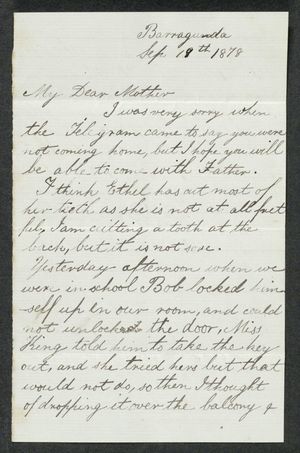 Barragunda
Sep 19th 1878
My Dear Mother
I was very sorry when
the Telegram came to say you were
not coming home, but I hope you will
be able to come with Father.
I think Ethel has cut most of
her teeth as she is not at all fret
ful, I am cutting a tooth at the
back, but it is not sore.
Yesterday afternoon when we
were in school Bob locked him-
self up in our room, and could
not unlock the door, Miss
King told him to take the key
out, and she tried hers but that
would not do, so then I thought
of dropping it over the balcony &